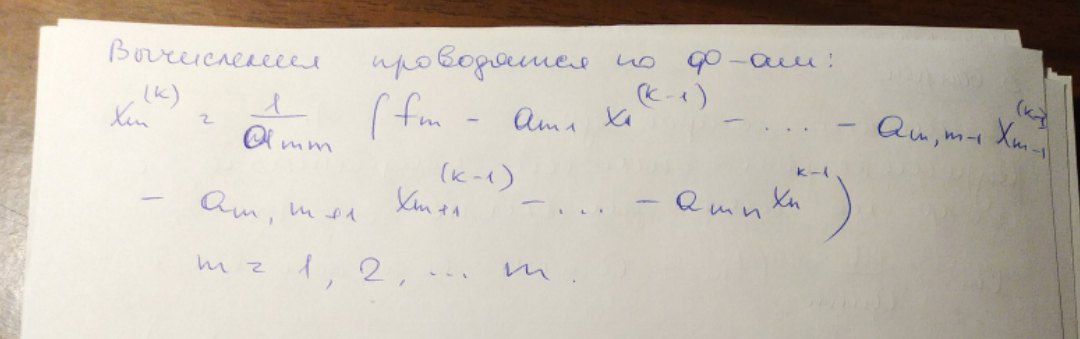 Вычисления проводятся по ф-ам:
xₘ⁽ᵏ⁾ = 1/aₘₘ (fₘ - aₘ₁ x₁⁽ᵏ⁻¹⁾ - ... - aₘ,ₘ₋₁ xₘ₋₁⁽ᵏ⁻¹⁾
- aₘ,ₘ₊₁ xₘ₊₁⁽ᵏ⁻¹⁾ - ... - aₘₙ xₙᵏ⁻¹)
m = 1, 2, ... m.